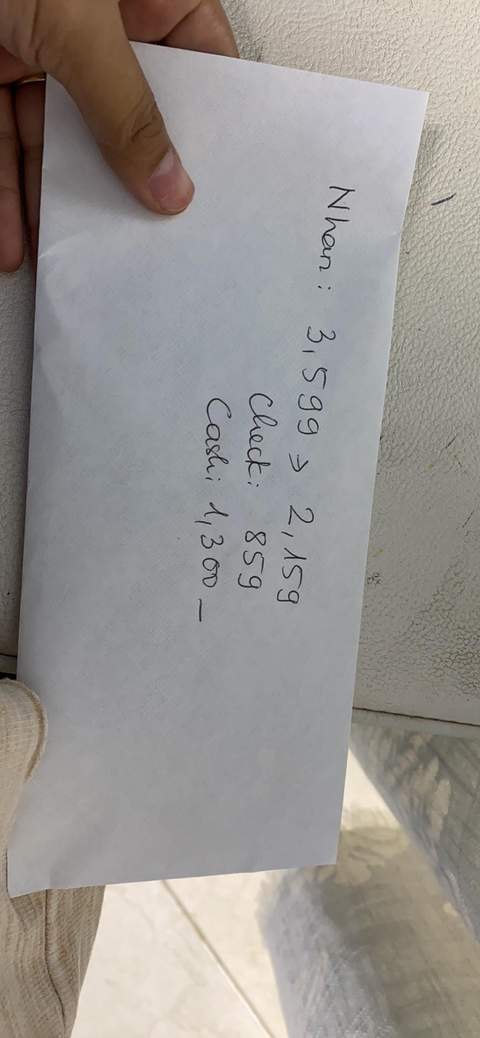 Nhan: 3,599 → 2,159
Check: 859
Cash: 1,300 —